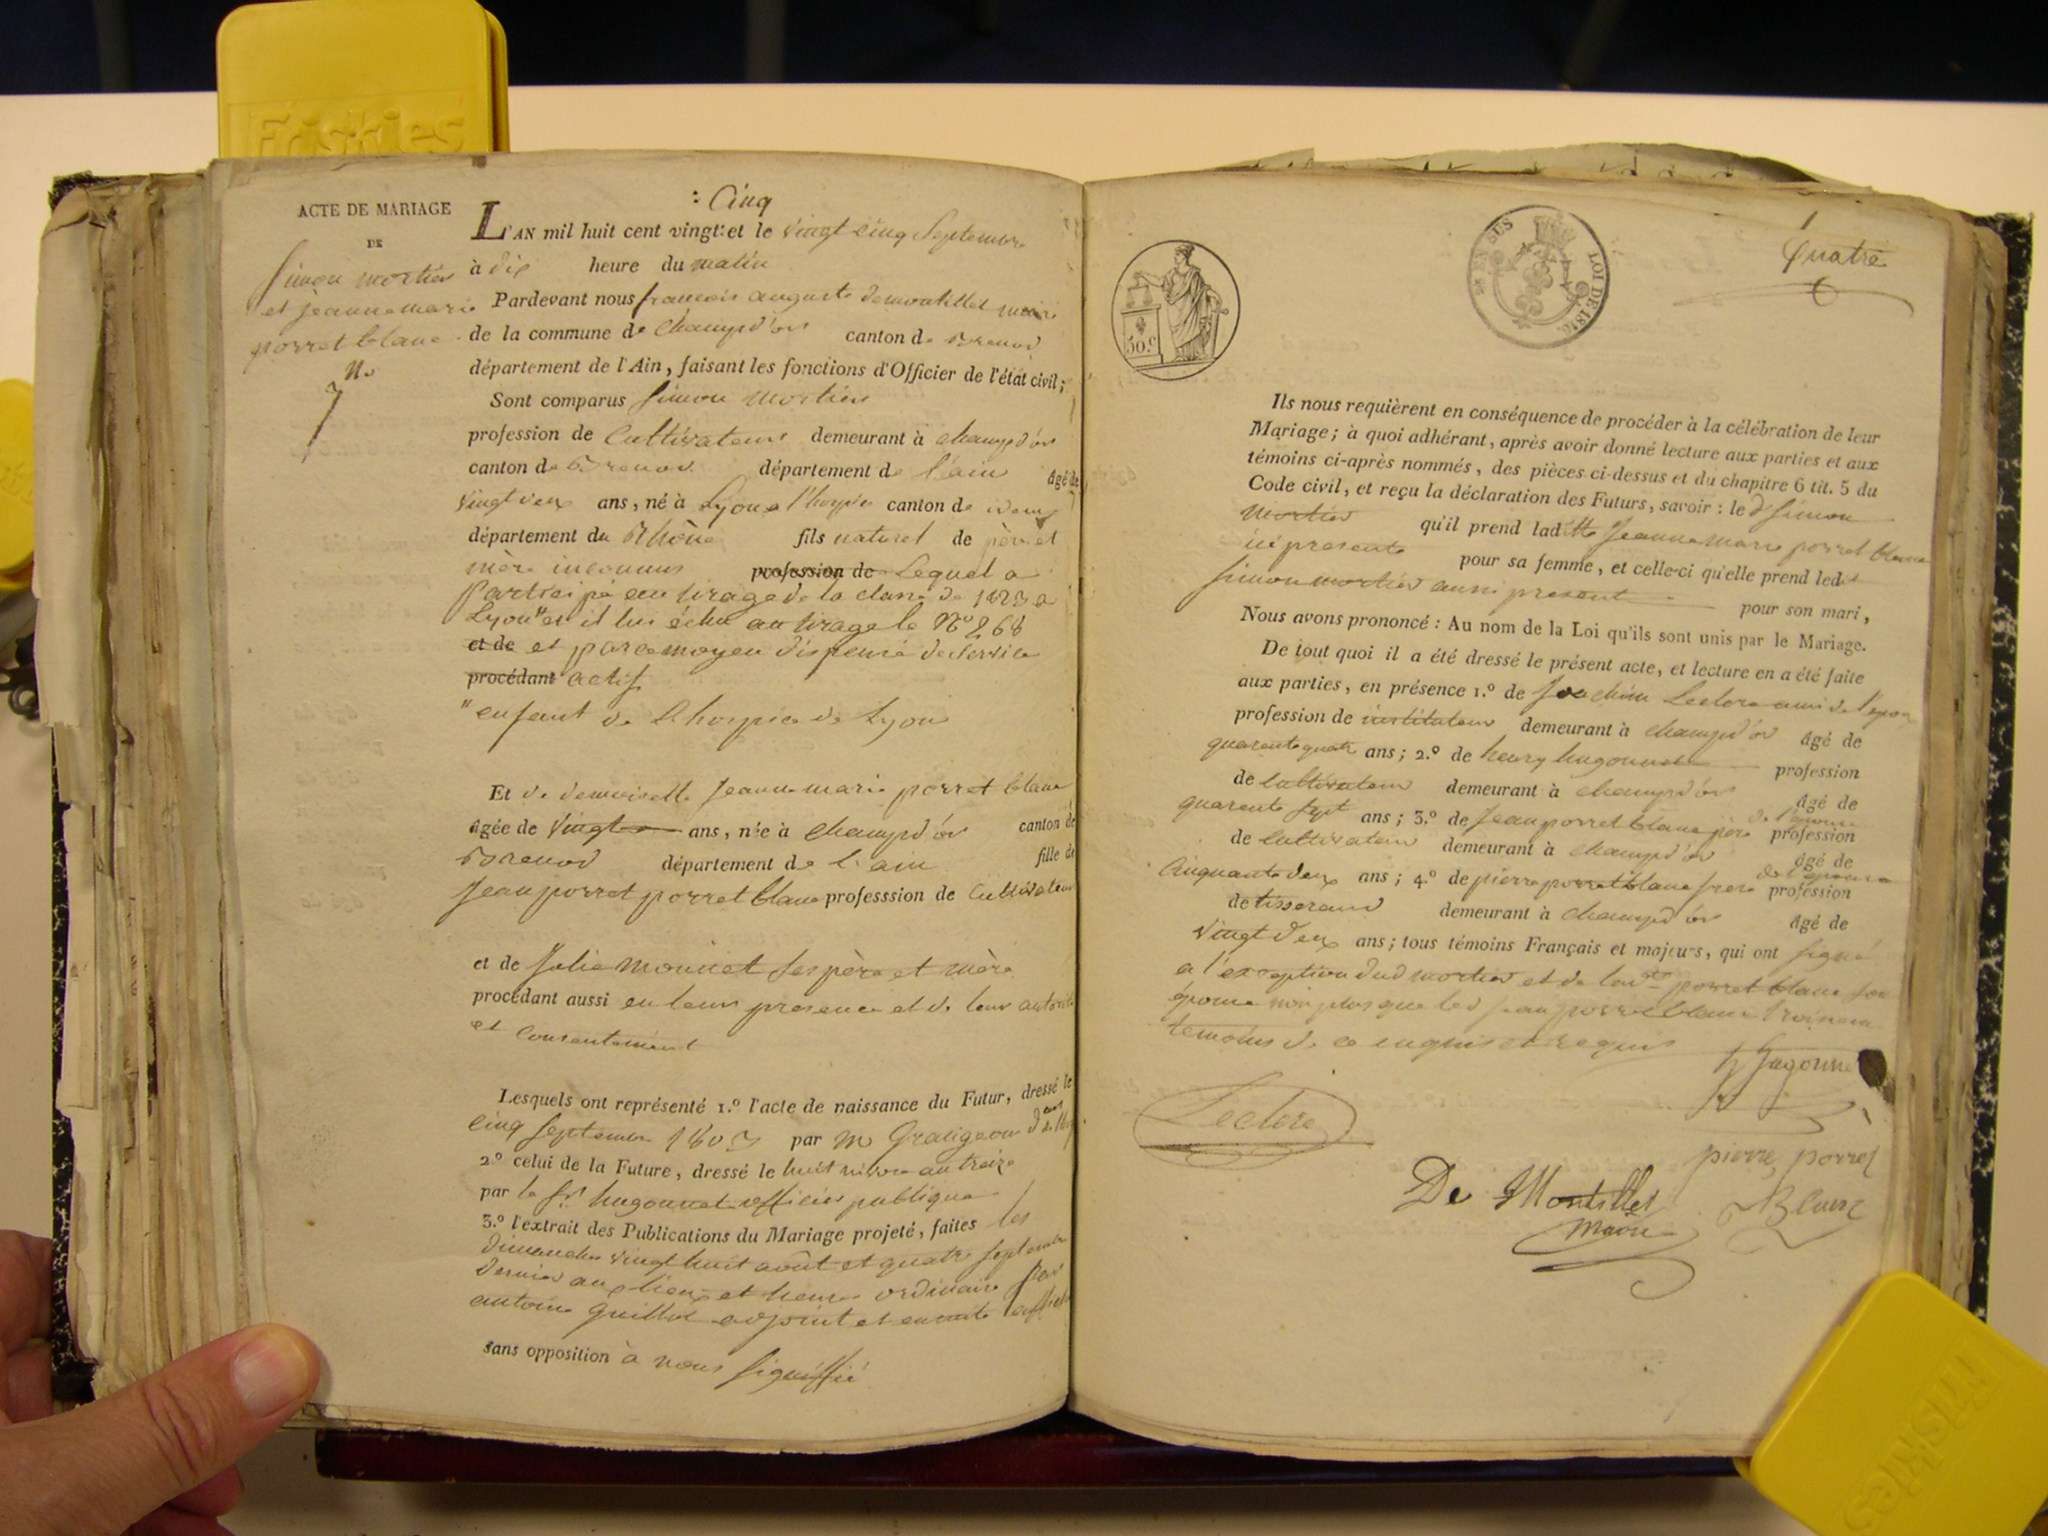 Friskies
ACTE DE MARIAGE
DE
Simon mortier
et jeannemarie
porret blanc
N.o
7
: Cinq
L'AN mil huit cent vingt: et le vingt cinq Septembre
à dix heure du matin
Pardevant nous francois auguste demontillet maire
de la commune de Champd'or canton de Brenod
département de l'Ain, faisant les fonctions d'Officier de l'état civil;
Sont comparus Simon Mortier
profession de Cultivateur demeurant à champd'or
canton de Brenod département de l'ain âgé de
vingt deux ans, né à Lyon a l'hospice canton de
département du Rhône fils naturel de père et
mère inconnus profession de Lequel a
Participé au tirage de la classe de 1823 a
Lyon" et il lui échu au tirage le N.o 268
et de et par ce moyen dispensé de service
procédant actif
" enfant de L'hospice de Lyon
Et de demoiselle Jeanne marie porret blanc
âgée de vingt ans, née à champd'or canton de
Brenod département de l'ain fille de
Jean porret porret blanc professsion de Cultivateur
et de Julie Monnet ses père et mère
procédant aussi en leur presence et de leur autorité
et consentement
Lesquels ont représenté 1.o l'acte de naissance du Futur, dressé le
cinq Septembre 1803 par M
2o celui de la Future, dressé le huit nivose an treize
par le Sr. hugonnet officier publique
3.o l'extrait des Publications du Mariage projeté, faites les
dimanches vingt huit août et quatre septembre
dernier aux lieux et heures ordinaire par
antoine Guillot adjoint et ensuite affiché
sans opposition à nous signiffié
50.c
EN SUS
LOI DE 1816
Quatre
Ils nous requièrent en conséquence de procéder à la célébration de leur
Mariage; à quoi adhérant, après avoir donné lecture aux parties et aux
témoins ci-après nommés, des pièces ci-dessus et du chapitre 6 tit. 5 du
Code civil, et reçu la déclaration des Futurs, savoir: le d Simon
Mortier qu'il prend ladtte Jeanne marie porret blanc
ici presente pour sa femme, et celle-ci qu'elle prend led
Simon mortier aussi present pour son mari,
Nous avons prononcé: Au nom de la Loi qu'ils sont unis par le Mariage.
De tout quoi il a été dressé le présent acte, et lecture en a été faite
aux parties, en présence 1.o de Joachim Leclerc ami de l'epoux
profession de instituteur demeurant à champd'or âgé de
quarante quatre ans; 2.o de henry hugonnet profession
de Cultivateur demeurant à champd'or âgé de
quarante Sept ans; 3.o de Jean porret blanc père de l'épouse profession
de Cultivateur demeurant à champd'or âgé de
Cinquante deux ans; 4.o de pierre porret blanc frere de l'épouse profession
de tisserand demeurant à champd'or âgé de
vingt deux ans; tous témoins Français et majeurs, qui ont signé
a l'exception dud mortier et de lad porret blanc son
épouse non plus que led jean porret blanc troisieme
temoins de ce enquis et requis
h hugonnet
Leclerc
pierre porret
Blanc
De Montillet
Maire
Friskies